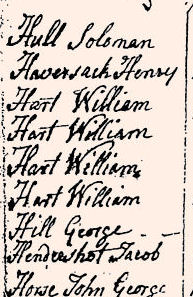 Hull Soloman
Haversack Henry
Hart William
Hart William
Hart William
Hart William
Hill George
Hendershot Jacob
Horse John George